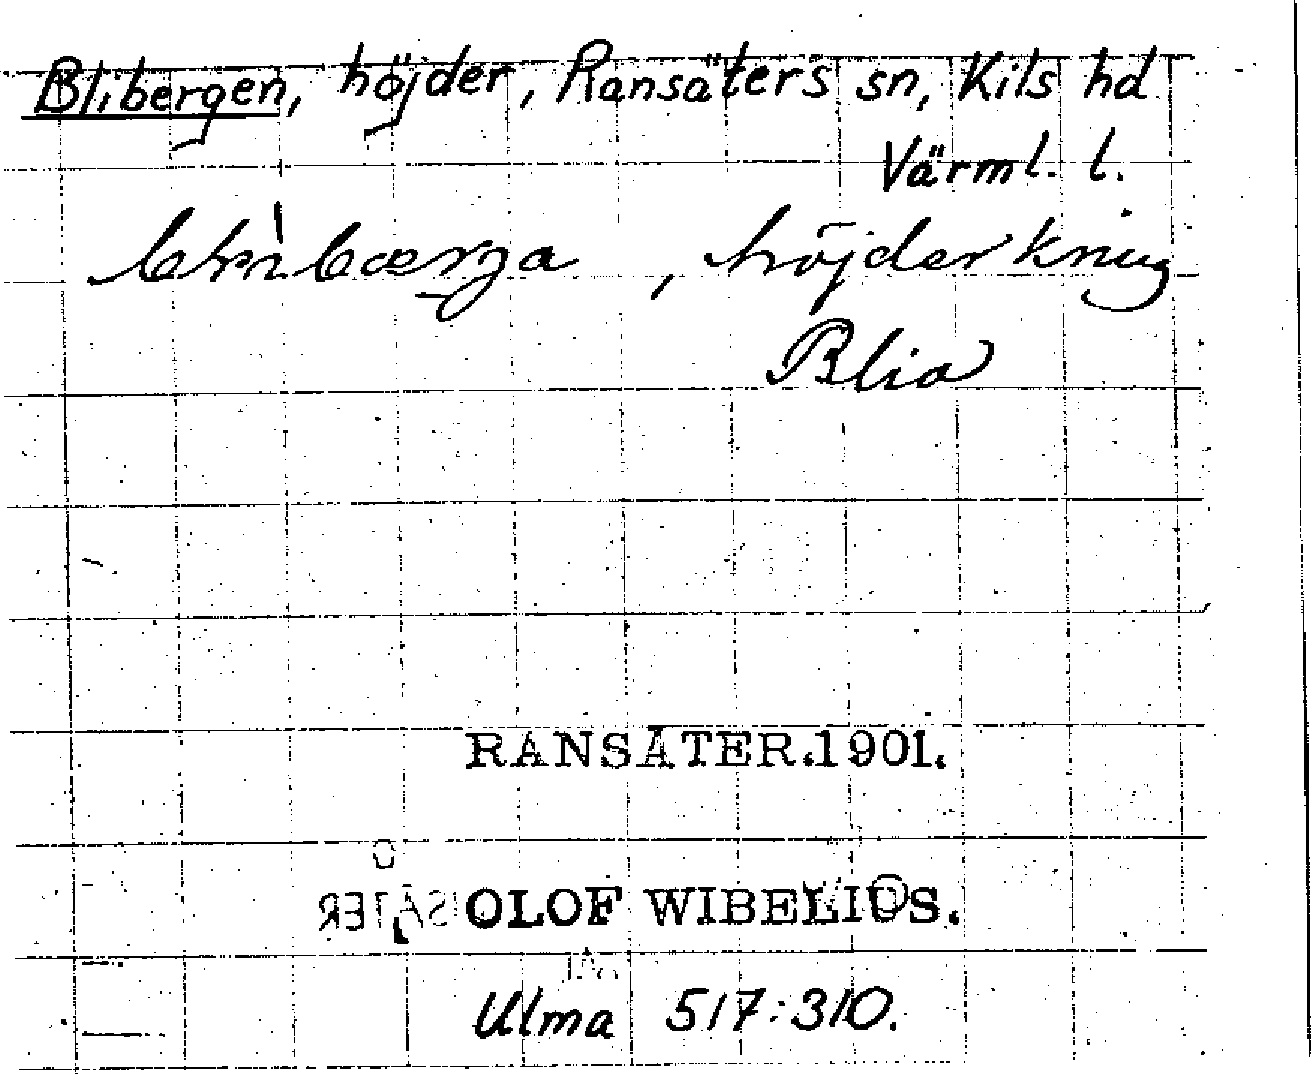 Blibergen, höjder, Ransäters sn, Kils hd
Värml. l.
, höjder kring
Blia
RANSÄTER.1901.
OLOF WIBELIUS.
Ulma 517:310.